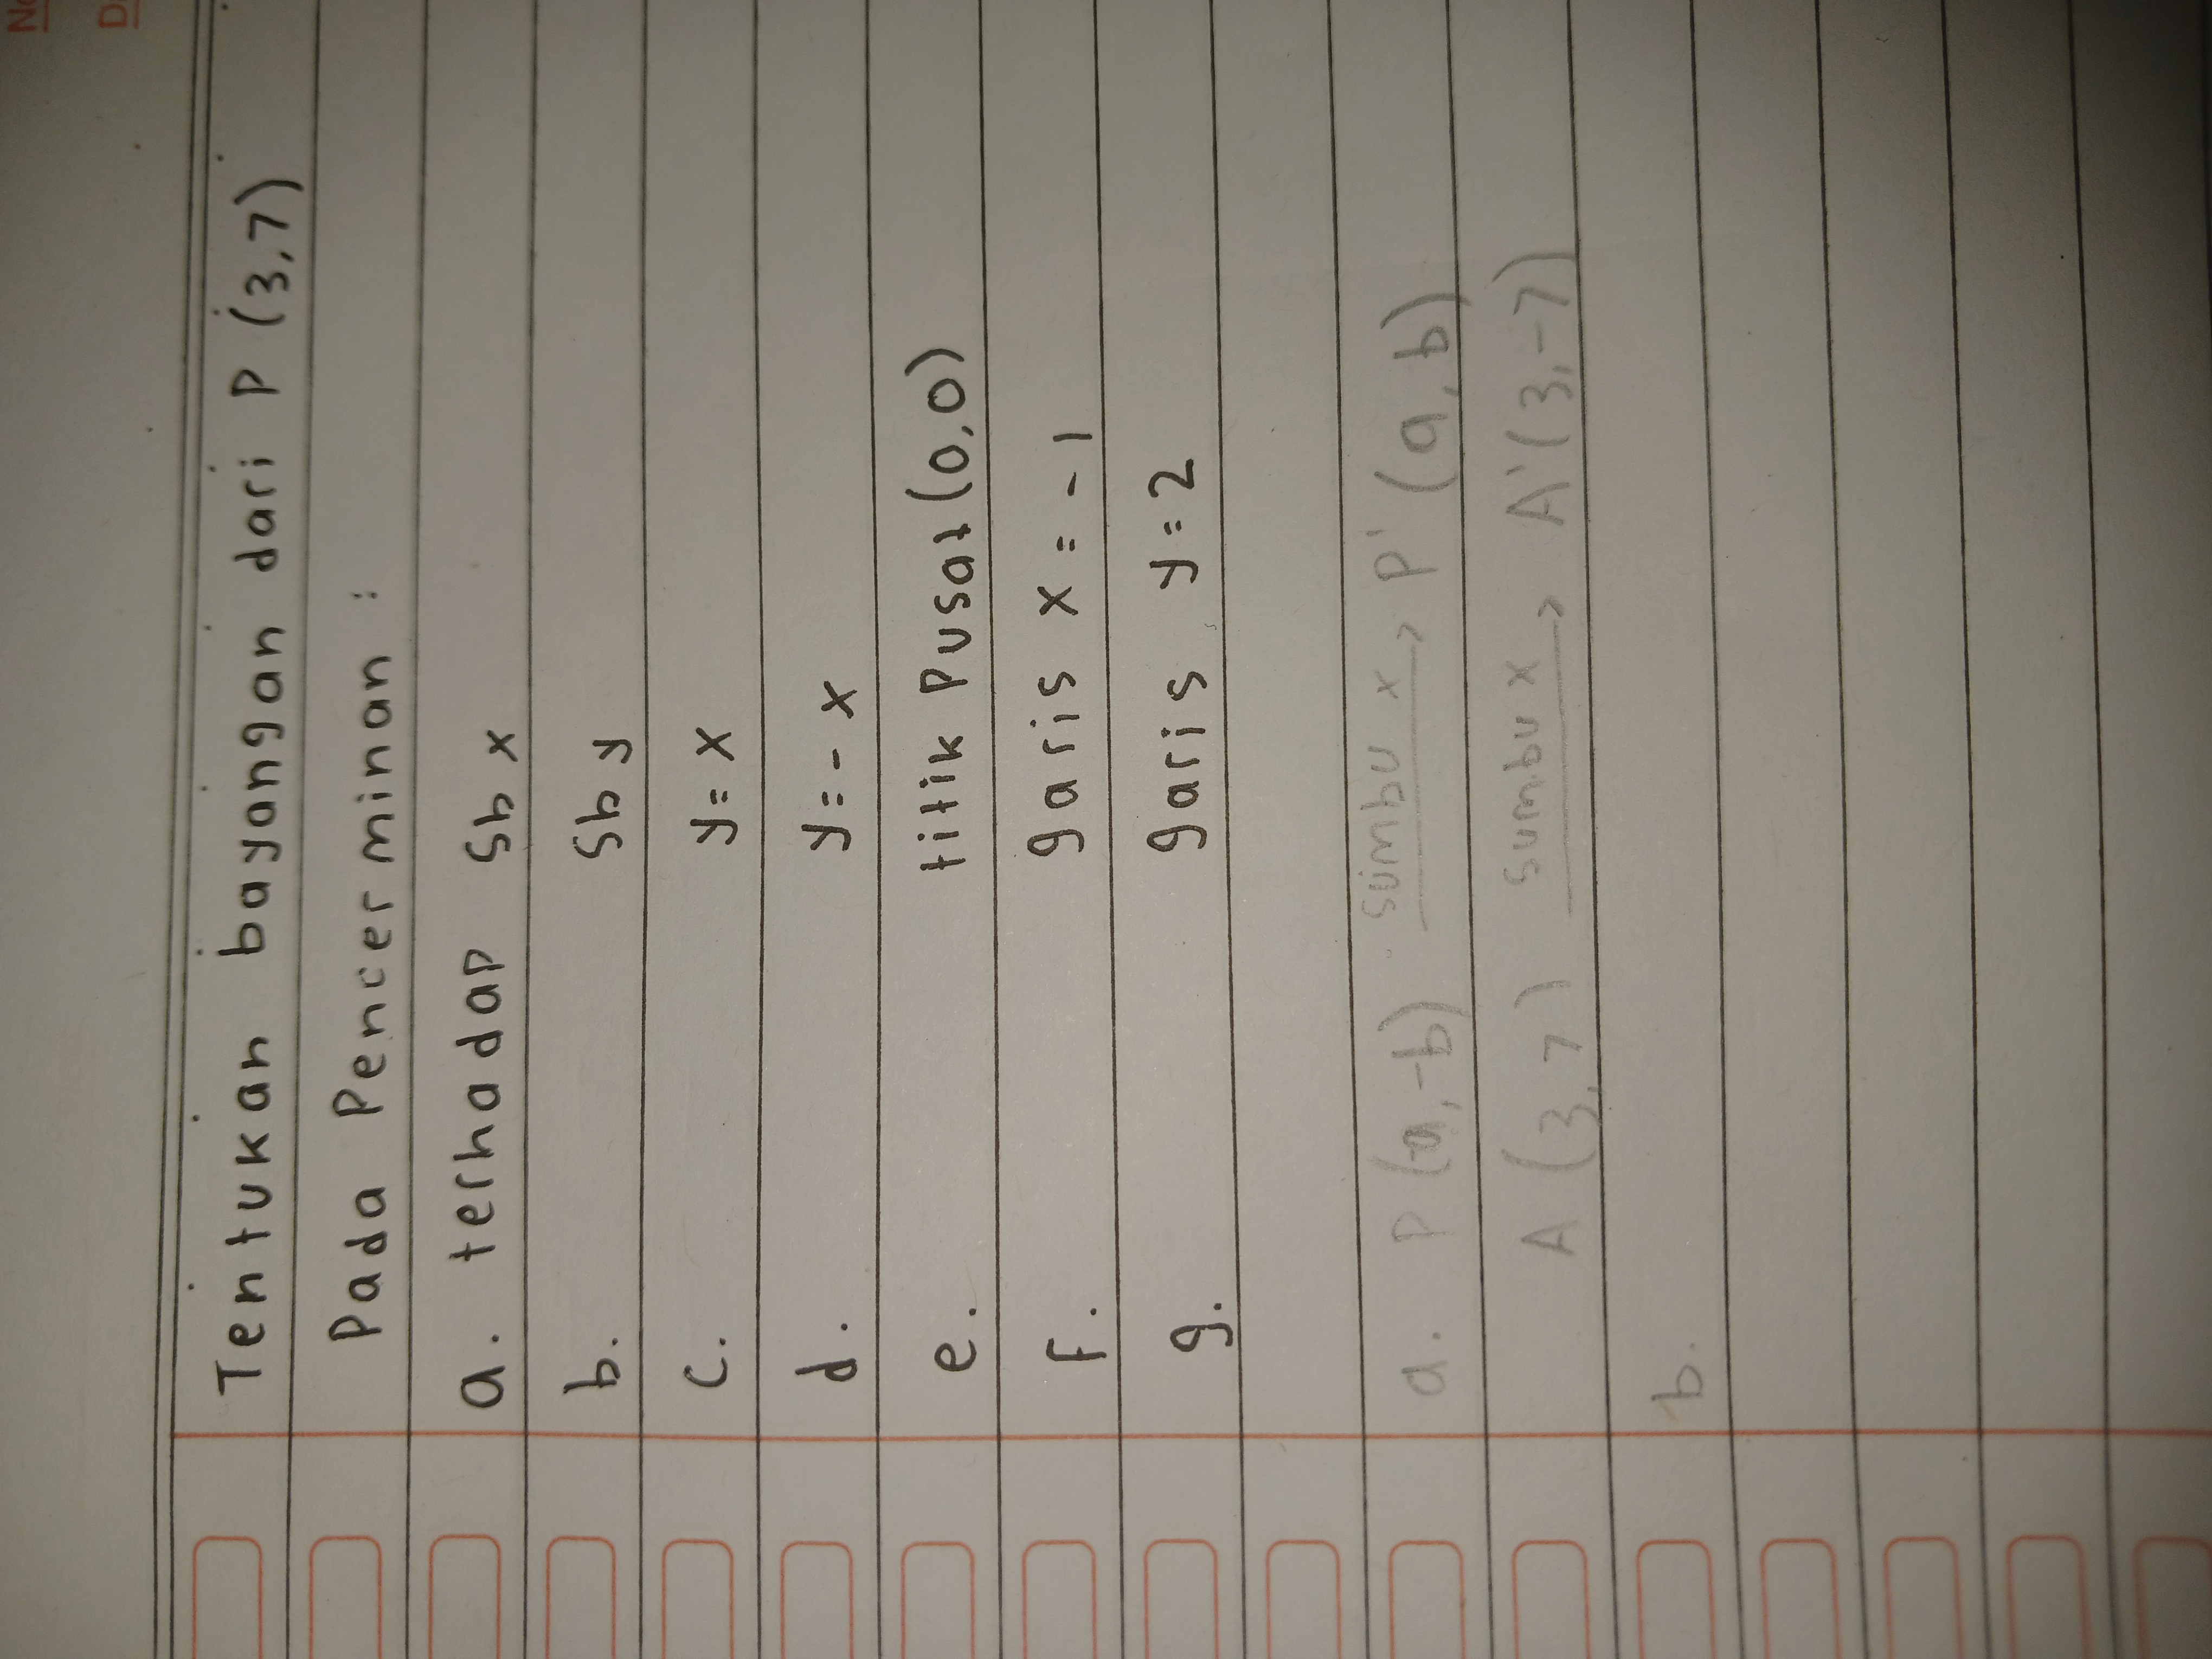 Tentukan bayangan dari P (3,7)
Pada Pencerminan :
a. terhadap Sb x
b. Sb y
c. y= x
d. y=- x
e. titik Pusat (0,0)
f. garis x = -1
g. garis y=2
a. P (-a, -b) sumbu x → P' (a, b)
A (3,7) sumbu x → A' (3,-7)
b.